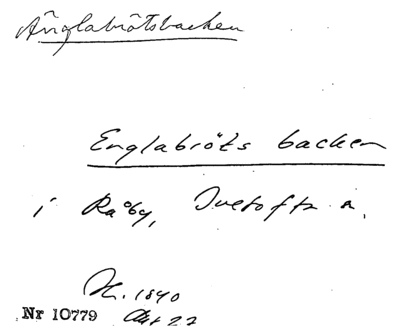 Änglabrötsbacken
Englabröts backen
i Råby, Ivetofta s.
H. 1840
Nr 10779 Akt 22